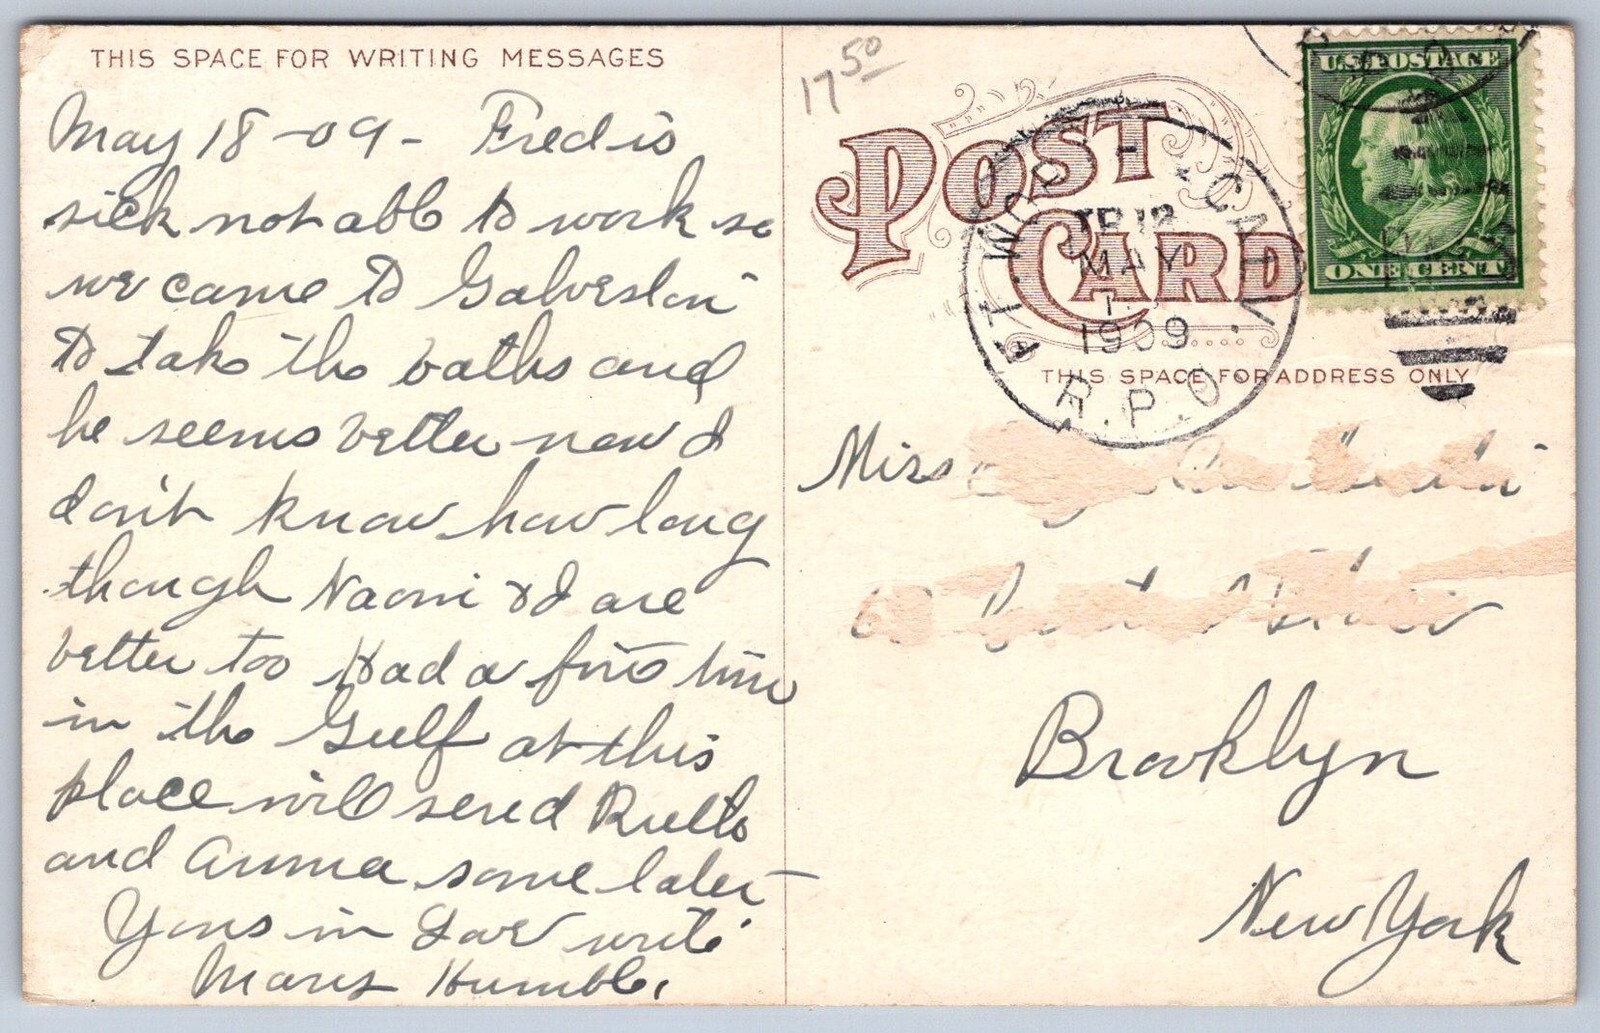 THIS SPACE FOR WRITING MESSAGES
May 18-09- Fred is
sick not able to work so
we came to Galveston
to take the baths and
he seems better now I
don't know how long
though Naomi & I are
better too Had a fine time
in the Gulf at this
place will send Ruth
and Anna some later
Yours in Love write
Humble.
17 50
POST CARD
FT. WORTH · CALV.
TR 12
MAY
1909
R.P.O.
U.S. POSTAGE
ONE CENT
THIS SPACE FOR ADDRESS ONLY
Miss
Brooklyn
New York